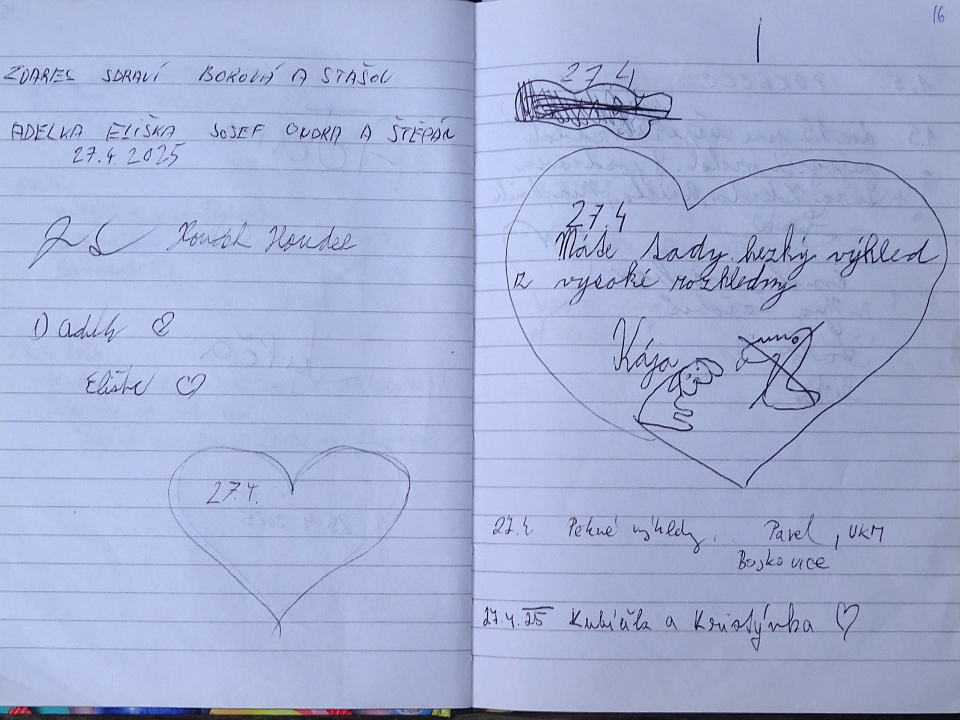 ZDAREC SDRAVÍ BOROVÁ A STAŠOV
ADELKA ELIŠKA JOSEF ONDRA A ŠTĚPÁN
27.4.2025
Houdek
Eliška ♡
27.4.
16
27.4
27.4
Máše sady hezký výhled
z vysoké rozhledny
Kája
27.4 Pěkné výhledy. Pavel, VKM
Boskovice
27.4.25 Kubíček a Kristýnka ♡